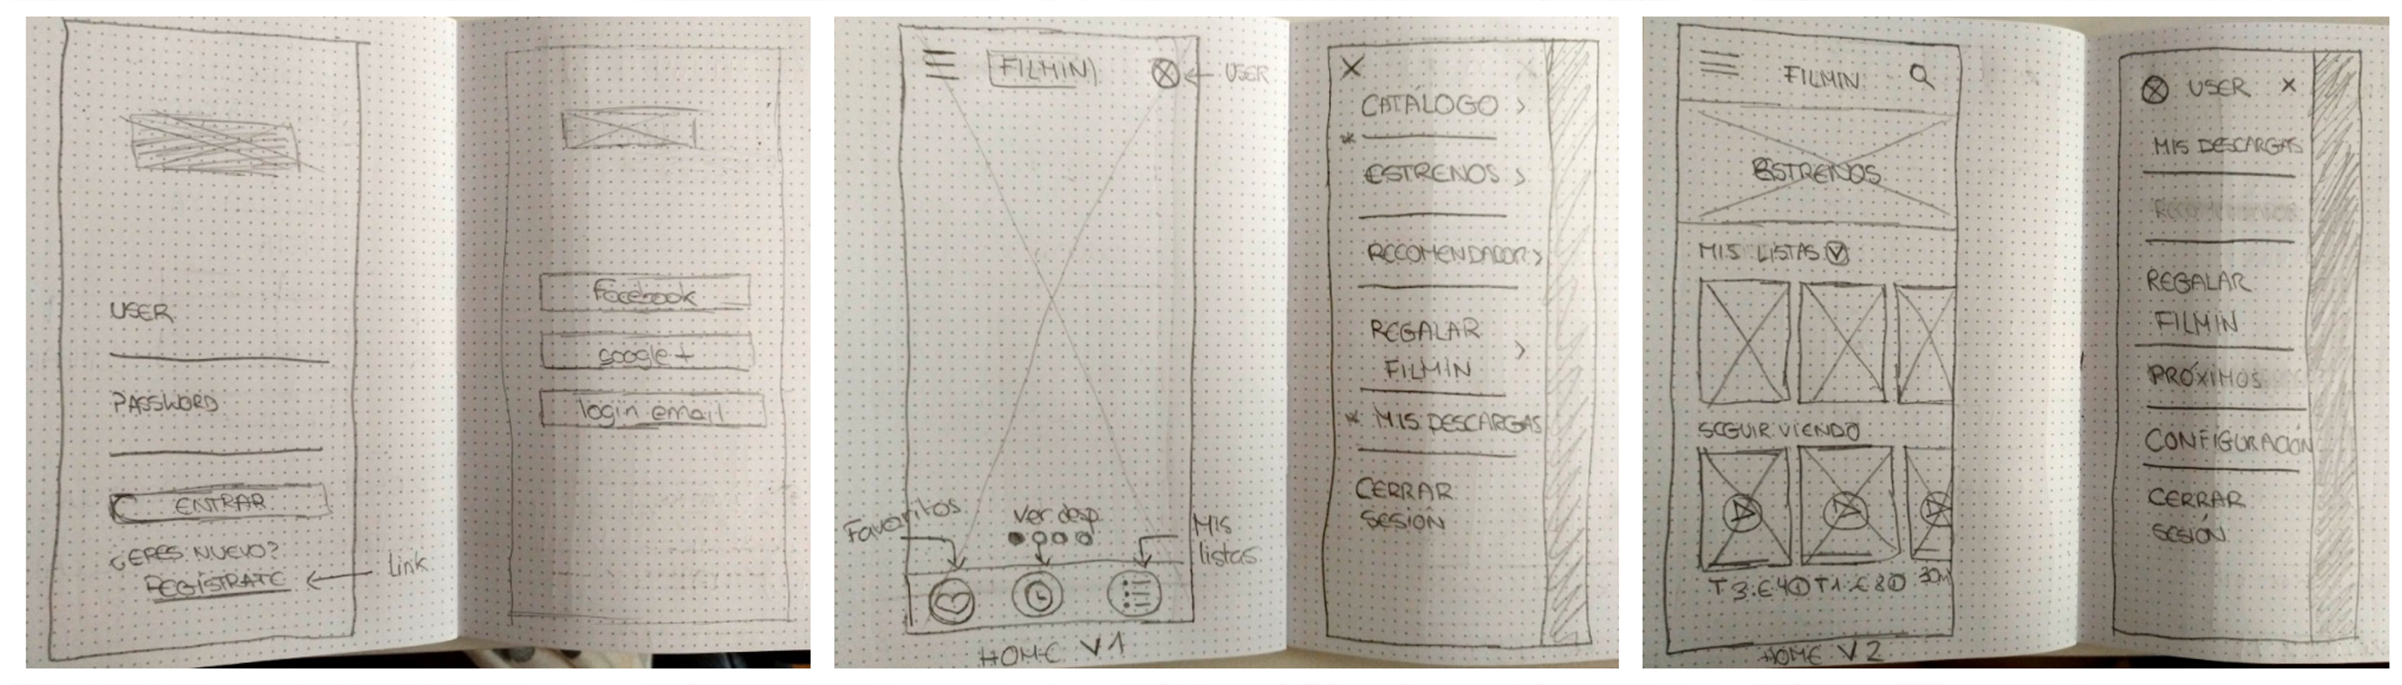 USER
PASSWORD
ENTRAR
¿ERES NUEVO?
REGÍSTRATE
Link
Facebook
google+
login email
FILMIN
USER
Favoritos
Ver desp.
Mis
listas
HOME V1
X
CATÁLOGO >
*
ESTRENOS >
RECOMENDADOR >
REGALAR
FILMIN >
* MIS DESCARGAS
CERRAR
SESIÓN
FILMIN
ESTRENOS
MIS LISTAS
SEGUIR VIENDO
T3:E4 T1:E8 30m
HOME V2
USER X
MIS DESCARGAS
REGALAR
FILMIN
PRÓXIMOS
CONFIGURACIÓN
CERRAR
SESIÓN